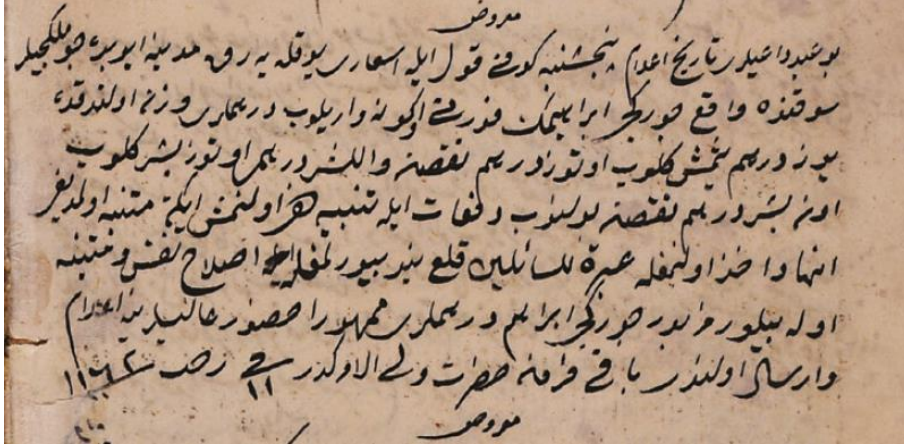 معروض
بو عبد داعیلری تاریخ اعلام پنجشنبه کونی قول ایله اسعاری یوقله یه رق مدینه ایوبده چوملکجیلر
سوقنده واقع چورکجی ابراهیمك واریلوب درهملری وزن اولندقده
یوز درهم یتمش کلوب اوتوز درهم نقصان واللیشر درهم اوتوز بشر کلوب
اون بشر درهم نقصان بولنوب دفعات ایله تنبیه اولنمش ایکن متنبه اولمدیغی
انها واخذ اولنمغله عبرة للسائرین قلعه بند بیورلمغله اصلاح نفس و متنبه
اوله بیلور مزبور چورکجی ابراهیم درهملری ممهورا حضور عالیلرینه اعلام
وارسال اولندی باقی فرمان حضرت ولی الامرکدر فی ١١ سنه ١١٦٢
معروض